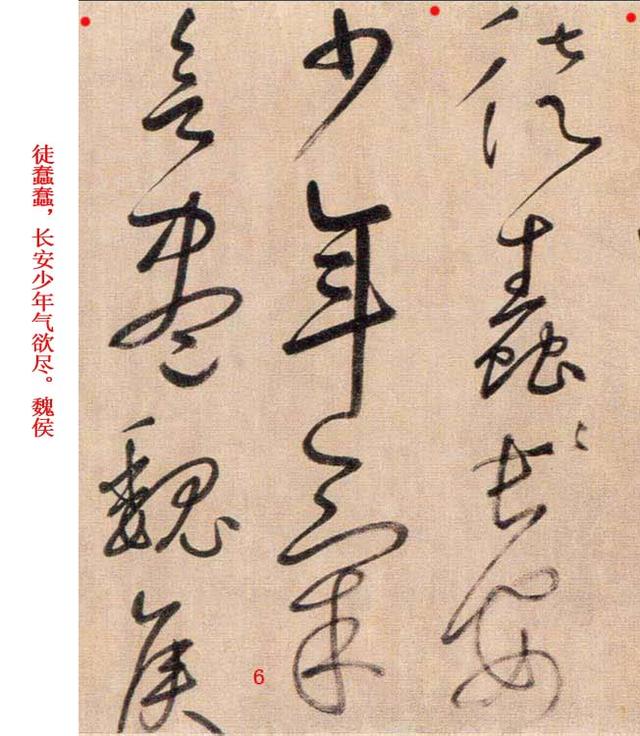 徒蠢〻長安
少年氣
盡魏侯
徒蠢蠢，长安少年气欲尽。魏侯
6